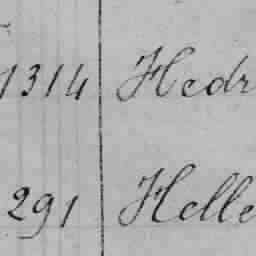 1314 Hedr
291 Helle